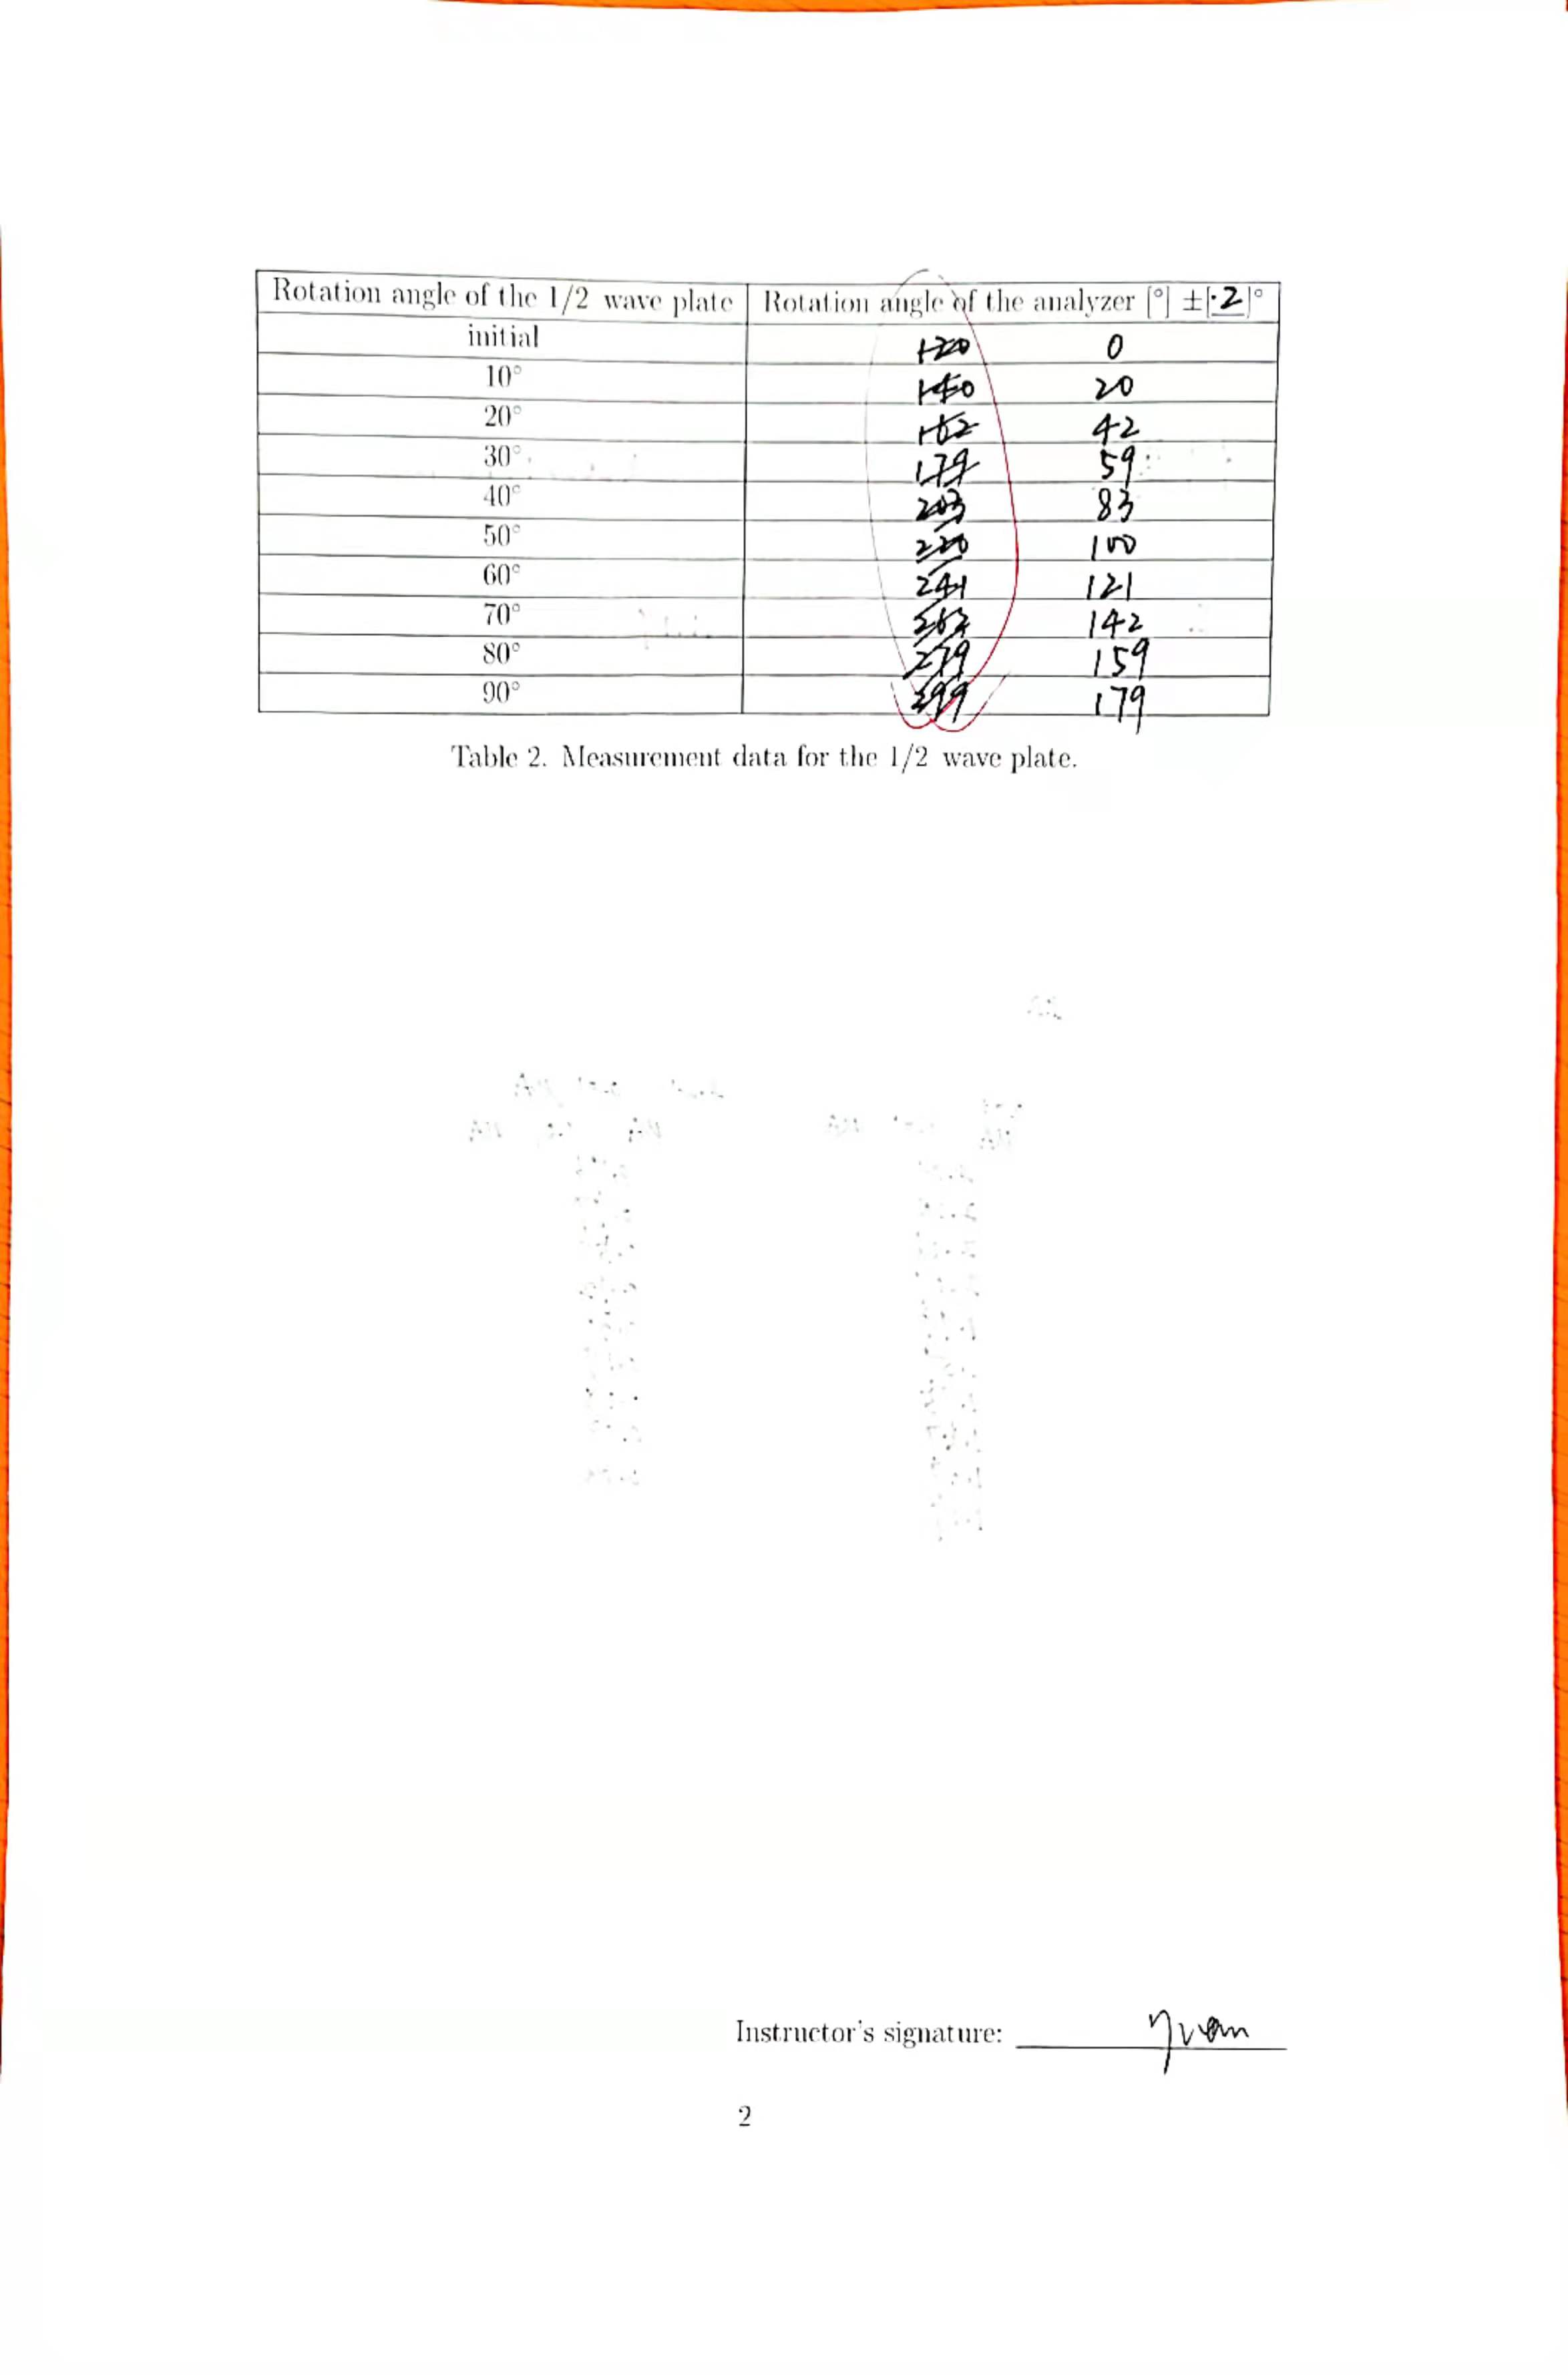 Rotation angle of the 1/2 wave plate Rotation angle of the analyzer [°] ±[.2]°
initial 120 0
10° 140 20
20° 162 42
30° 179 59
40° 203 83
50° 220 100
60° 241 121
70° 262 142
80° 279 159
90° 299 179
Table 2. Measurement data for the 1/2 wave plate.
Instructor's signature:
2